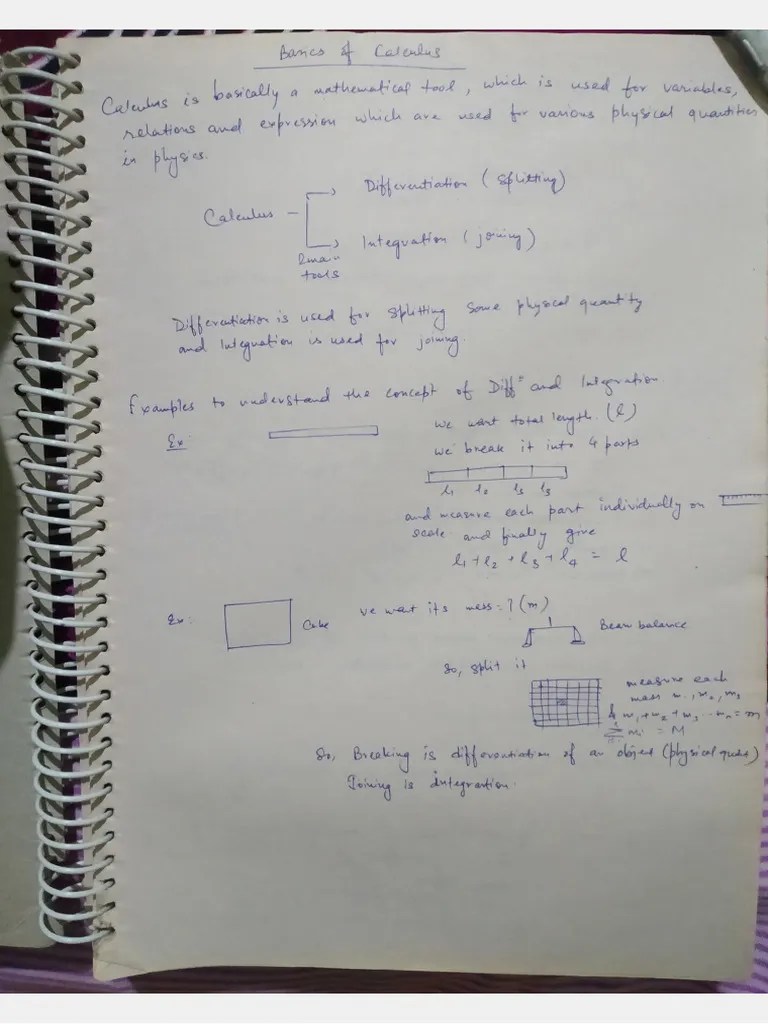 Basics of Calculus
Calculus is basically a mathematical tool, which is used for variables,
relations and expression which are used for various physical quantities
in physics.
Differentiation (splitting)
Calculus
Integration (joining)
2 main
tools
Differentiation is used for splitting some physical quantity
and Integration is used for joining.
Examples to understand the concept of Diffⁿ and Integration.
Ex:
we want total length. (l)
we break it into 4 parts
l₁ l₂ l₃ l₃
and measure each part individually on
scale and finally give
l₁+l₂+l₃+l₄ = l
Ex:
Cake
we want its mass = ? (m)
Beam balance
So, split it
measure each
mass m₁, m₂, m₃
& m₁+m₂+m₃...mₙ=m
mᵢ = M
So, Breaking is differentiation of an object (physical quat.)
Joining is integration.